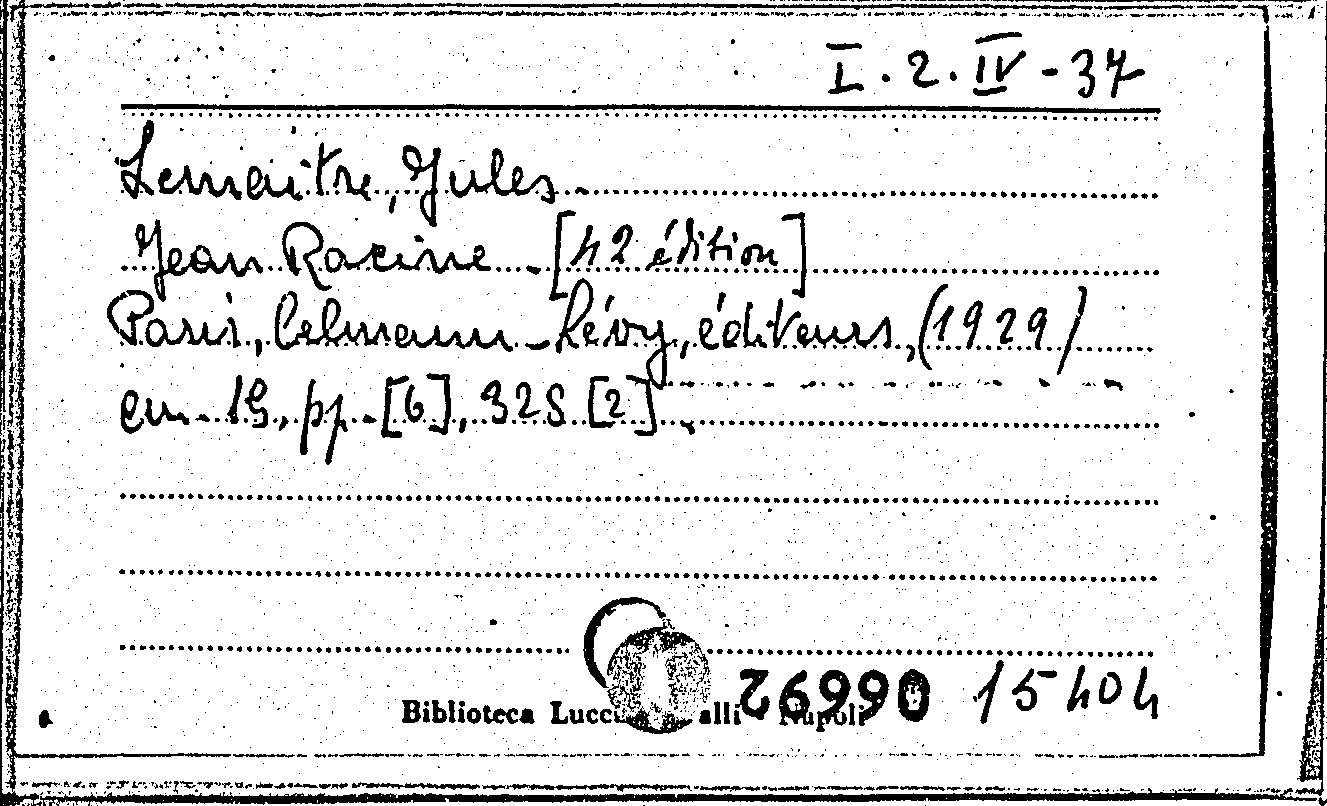 I.2.IV-37
Lemaitre, Jules
Jean Racine - [42 édition]
Paris, Celmann-Lévy, éditeurs, (1929)
cm. 19, pp. [6], 328 [2].
Biblioteca alli - Napoli 26990 15404